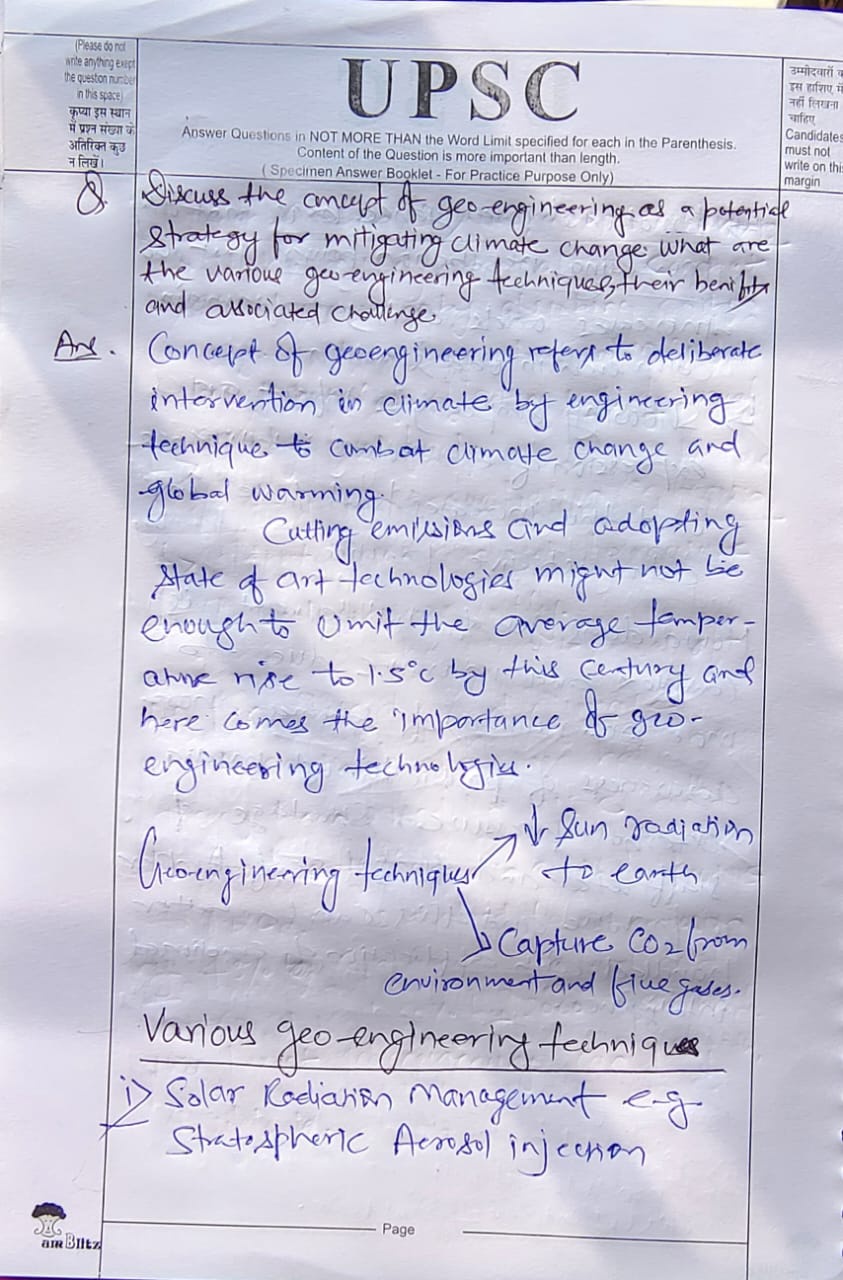 (Please do not
write anything exept
the question number
in this space)
कृप्या इस स्थान
में प्रश्न संख्या के
अतिरिक्त कुछ
न लिखें।
UPSC
Answer Questions in NOT MORE THAN the Word Limit specified for each in the Parenthesis.
Content of the Question is more important than length.
( Specimen Answer Booklet - For Practice Purpose Only)
उम्मीदवारों
इस हाशिए में
नहीं लिखना
चाहिए
Candidates
must not
write on this
margin
Q. Discuss the concept of geo-engineering as a potential
strategy for mitigating climate change. what are
the various geo-engineering techniques, their benifits
and associated challenge.
Ans. Concept of geoengineering refers to deliberate
intervention in climate by engineering
technique to combat climate change and
global warming.
Cutting emissions and adopting
state of art technologies might not be
enough to limit the average temper-
ature rise to 1.5°c by this century and
here comes the importance of geo-
engineering technologies.
Geo-engineering techniques
↓ Sun radiation
to earth
Capture CO2 from
environment and flue gases.
Various geo-engineering techniques
i) Solar Radiation Management e.g.
Stratospheric Aerosol injection
Page
am Blitz